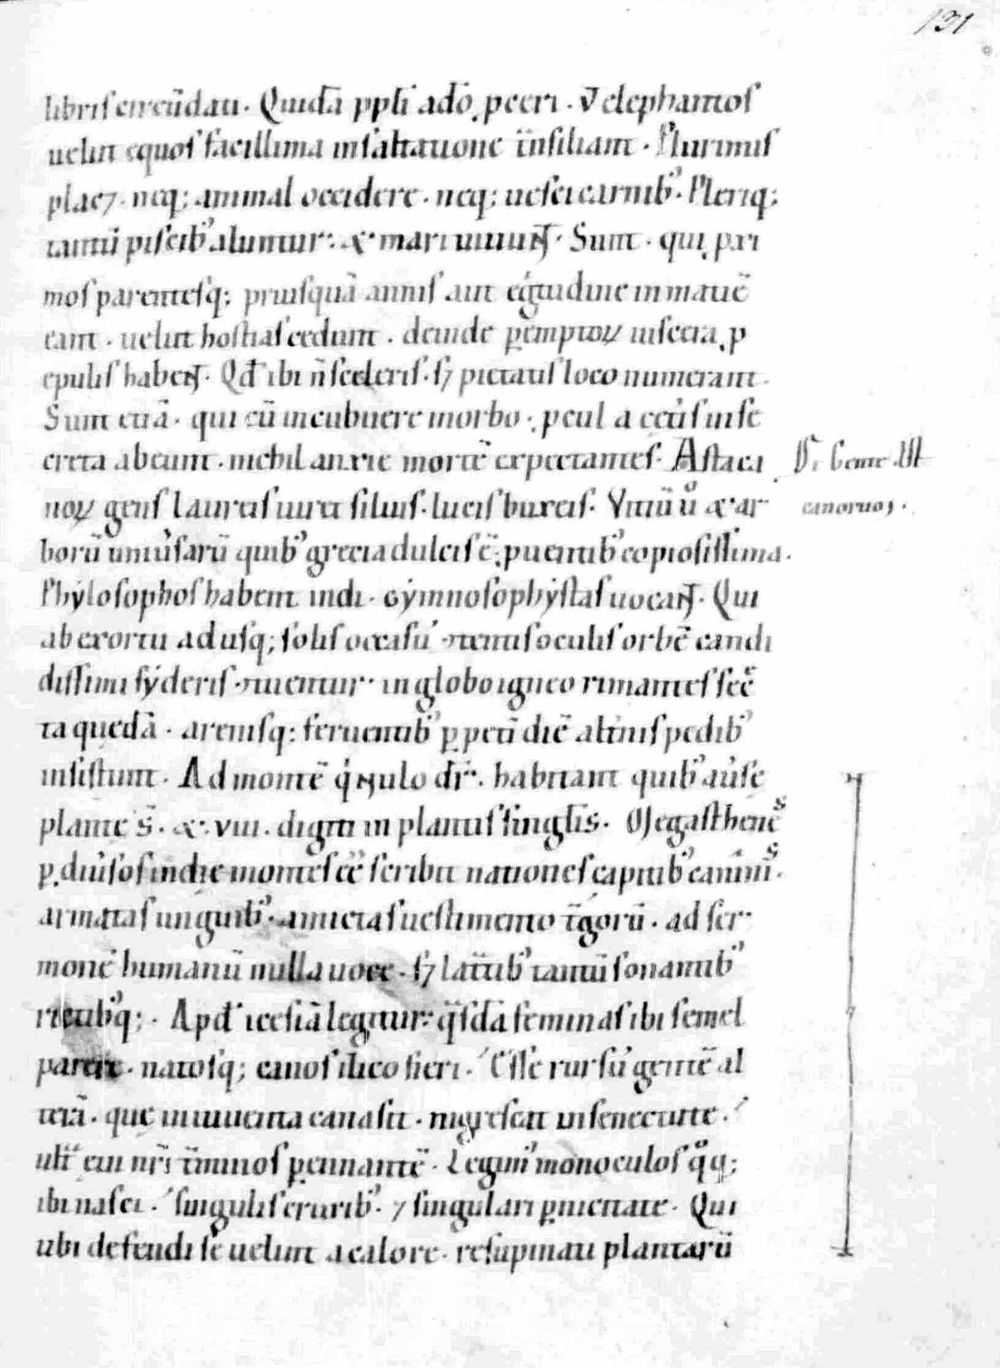 131
libris circūdati · Quidā ppłi adō peeri · v̄ elephantos
uelut equos facillima insaltatione īnsiliant · Plurimis
plac⁊ · neq; animal occidere · neq; uesci carnib᾽ · Pleriq;
tantū piscib᾽ aluntur · & mari uiuūt · Sunt · qui pxi
mos parentesq; priusquā annis aut egritudine in maciē
eant · uelut hostias cedunt · deinde pemptoꝝ uiscera p
epulis habent · Qđ ibi n̄ sceleris · s⁊ pietatis loco numerant ·
Sunt etiā · qui cū incubuere morbo · pcul a ceteris in se
creta abeunt · nichil anxie mortē expectantes · Astaca
noꝝ gens laureis uiret siluis · lucis buxeis · Vitiū u᾽ & ar
borū uniu᾽sarū quib᾽ grecia dulcis ē · puentib᾽ copiosissima ·
Phylosophos habent indi · gymnosophystas uocant · Qui
ab exortu ad usq; solis occasū · ntentis oculis orbē candi
dissimi syderis ntuentur · in globo igneo rimantes sec̄
ta quedā · arenisq; feruentib᾽ ppetī diē alt᾽nis pedib᾽
insistunt · Ad montē qⁱ nulo dr̄ · habitant quib᾽ au᾽se
plante s̄ · & · viii · digiti in plantis singl̄is · Megasthenēs
p diu᾽sos indie montes eē scribit nationes capitib᾽ caninis ·
armatas unguib᾽ · amictas uestimento t̄gorū · ad ser
monē humanū nulla uoce · s⁊ latᵃtib᾽ tantū sonantib᾽
rictib᾽q; · Apđ icesiā legitur · qᵃsdā feminas ibi semel
parere · natosq; canos ilico fieri · Esse rursū gentē al
terā · que in iuuenta cana sit · nigrescit in senectute ·
ult̄ eui nr̄i t᾽minos pennantē · Legim᾽ monoculos qᵒq;
ibi nasci · singulis crurib᾽ · ⁊ singulari pnicitate · Qui
ubi defendi se uelint a calore · resupinati plantarū
De Gente Ast
canorum ·